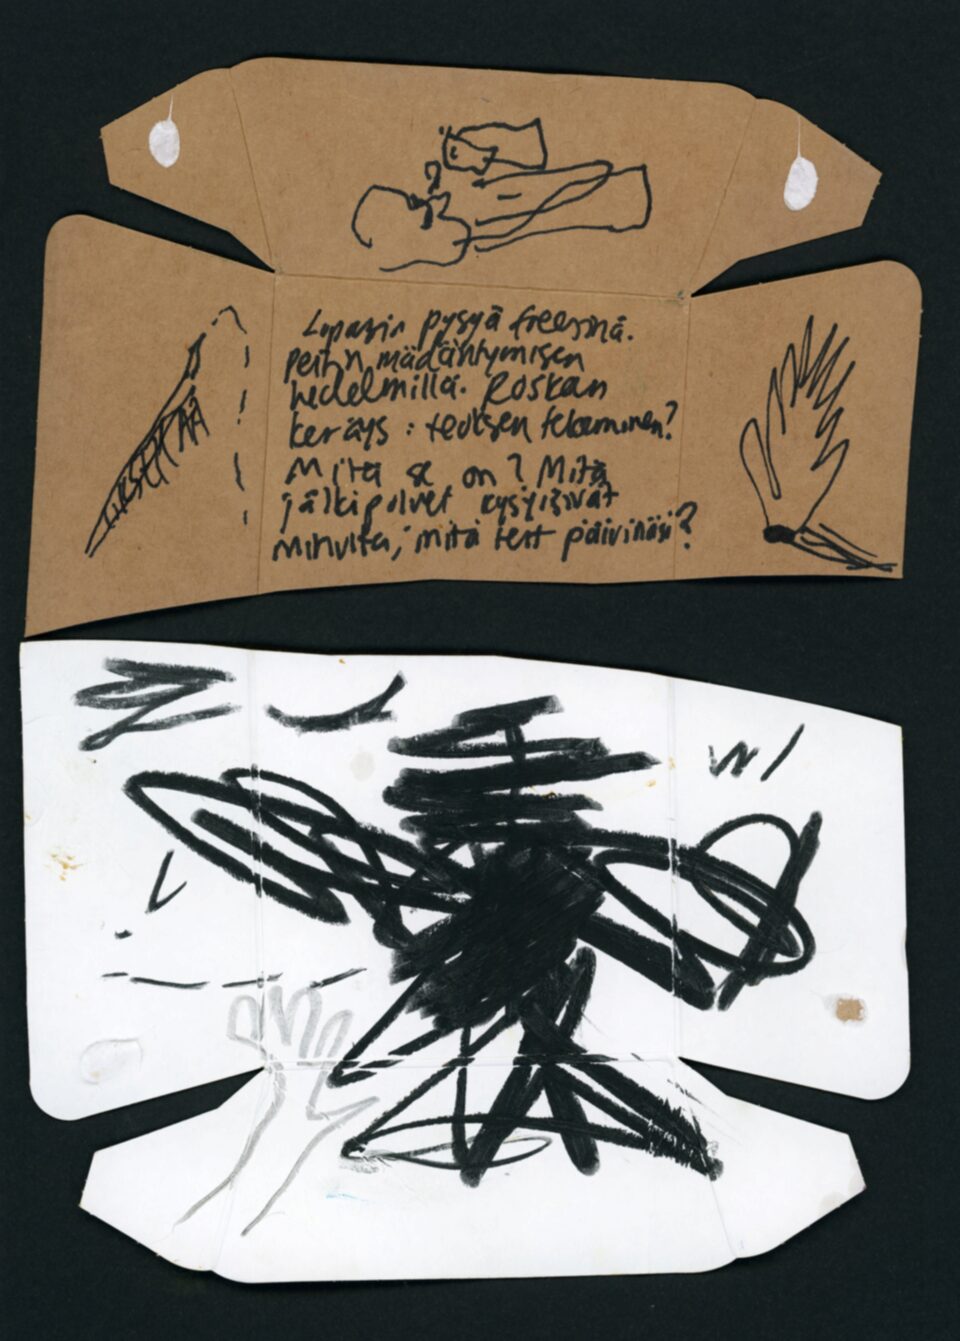 Lupasin pysyä freesinä.
Peitin mädäntymisen
hedelmillä. Roskan
keräys : teoksen tekeminen?
Mitä se on? Mitä
jälkipolvet kysyisivät
minulta, mitä teit päivinäsi?